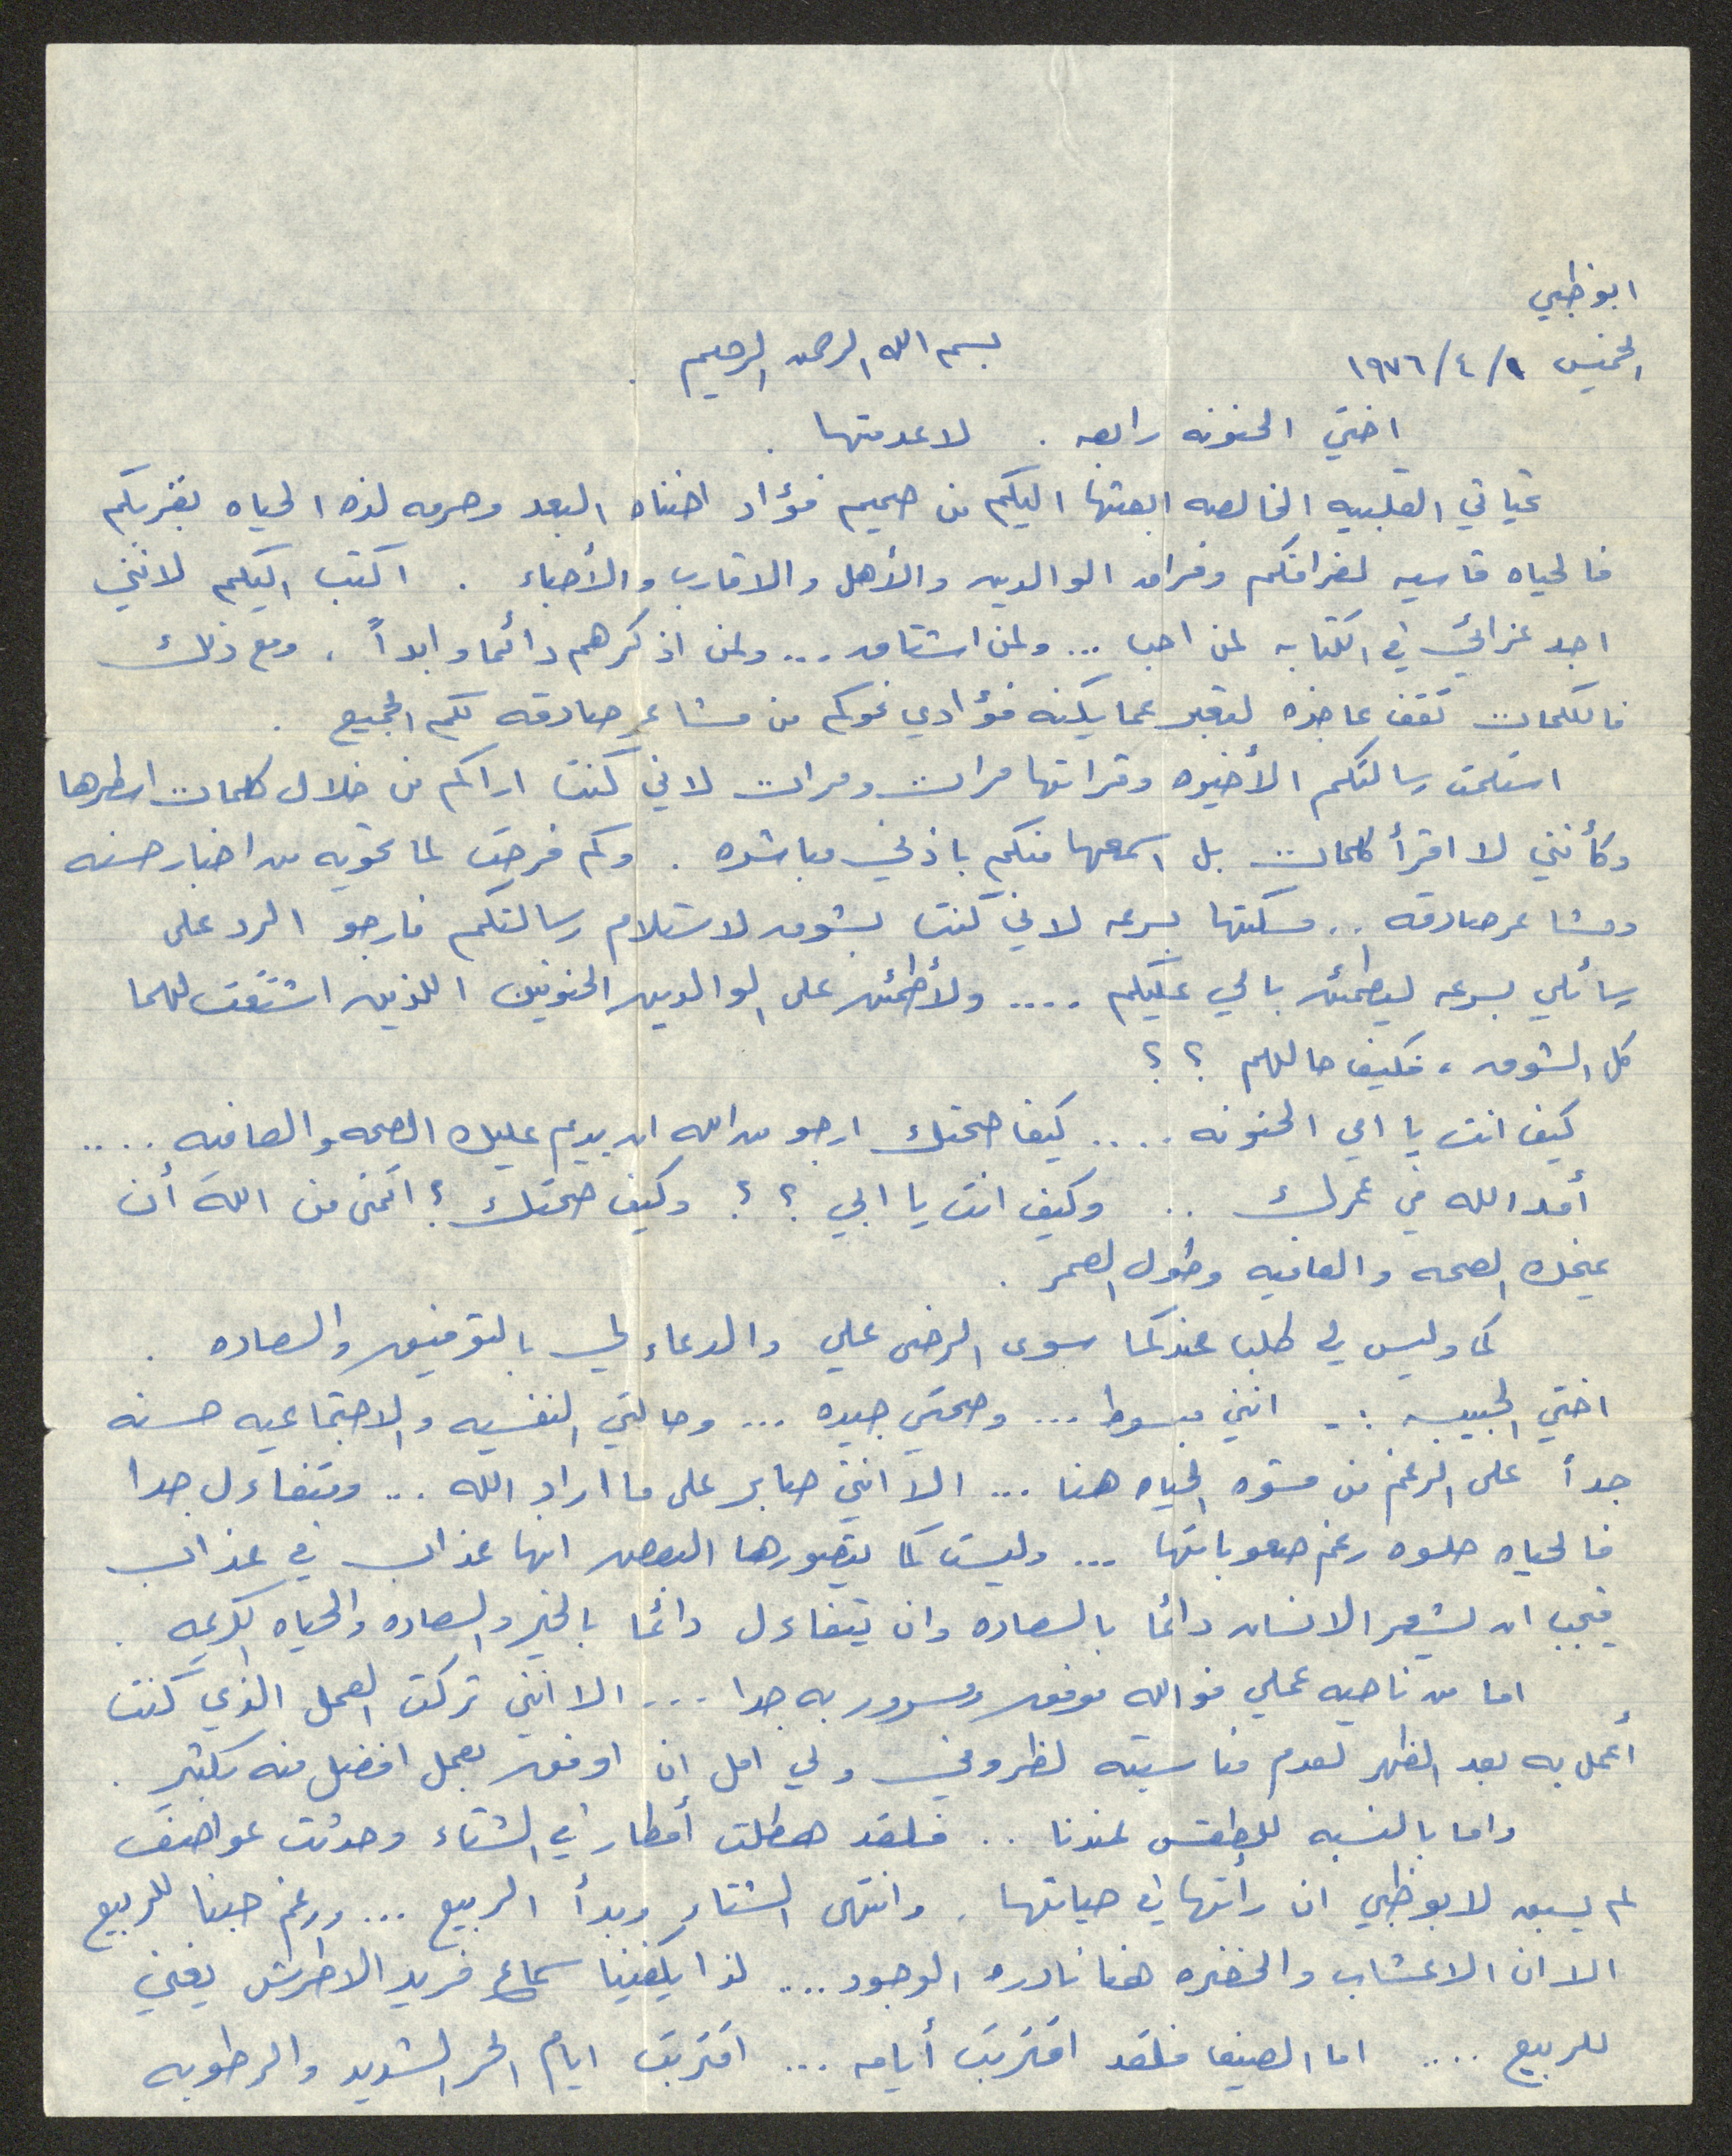 ابوظبي
الخميس ١/٤/١٩٧٦
بسم الله الرحمن الرحيم .
اختي الحنونه رابعه . لا عدمتها .
تحياتي القلبيه الخالصه ابعثها اليكم من صميم فؤاد اضناه البعد وحرمه لذه الحياه بقربكم
فالحياه قاسيه لفراقكم وفراق الوالدين والأهل والاقارب والأحباء . اكتب اليكم لانني
اجد عزائي في الكتابه لمن احب ... ولمن اشتاق ... ولمن اذكرهم دائما وابداً ، ومع ذلك
فالكلمات تقف عاجزه لتعبر عما يكنه فؤادي نحوكم من مشاعر صادقه لكم الجميع .
استلمت رسالتكم الأخيره وقرأتها مرات ومرات لاني كنت اراكم من خلال كلمات اسطرها
وكأنني لا اقرأ كلمات بل اسمعها منكم باذني مباشره . وكم فرحت لما تحويه من اخبار حسنه
ومشاعر صادقه .. مسكتها بسرعه لاني كنت بشوق لاستلام رسالتكم فارجو الرد على
رسائلي بسرعه ليطمئن بالي عليكم .... ولأطمئن على الوالدين الحنونين اللذين اشتقت لهما
كل الشوق ، فكيف حالهم ؟ ؟
كيف انت يا امي الحنونه .... كيف صحتك ارجو من الله ان يديم عليك الصحه والعافيه ....
أمد الله في عمرك .. وكيف انت يا ابي ؟ ؟ وكيف صحتك ؟ اتمنى من الله أن
يمنحك الصحه والعافيه وطول العمر .
كما وليس لي طلب عندكما سوى الرضى علي والدعاء لي بالتوفيق والسعاده .
اختي الحبيبه :- انني مبسوط ... وصحتي جيده ... وحالتي النفسيه والاجتماعيه حسنه
جداً على الرغم من قسوه الحياه هنا ... الا انني صابر على ما اراد الله ... ومتفاءل جدا
فالحياه حلوه رغم صعوباتها ... وليست كما يتصورها البعض انها عذاب في عذاب
فيجب ان يشعر الانسان دائما بالسعاده وان يتفاءل دائما بالخير والسعاده والحياه الكريمه .
اما من ناحيه عملي فوالله موفق ومسرور به جدا ... الا انني تركت العمل الذي كنت
أعمل به بعد الظهر لعدم مناسبته لظروفي ولي امل ان اوفق بعمل افضل منه بكثير .
واما بالنسبه للطقس عندنا .. فلقد هطلت أمطار في الشتاء وحدثت عواصف
لم يسبق لابوظبي ان رأتها في حياتها . وانتهى الشتاء وبدأ الربيع ... ورغم حبنا للربيع
الا ان الاعشاب والخضره هنا نادره الوجود .... لذا يكفينا سماع فريد الاطرش يغني
للربيع .... اما الصيف فلقد اقتربت أيامه ... اقتربت ايام الحر الشديد والرطوبه